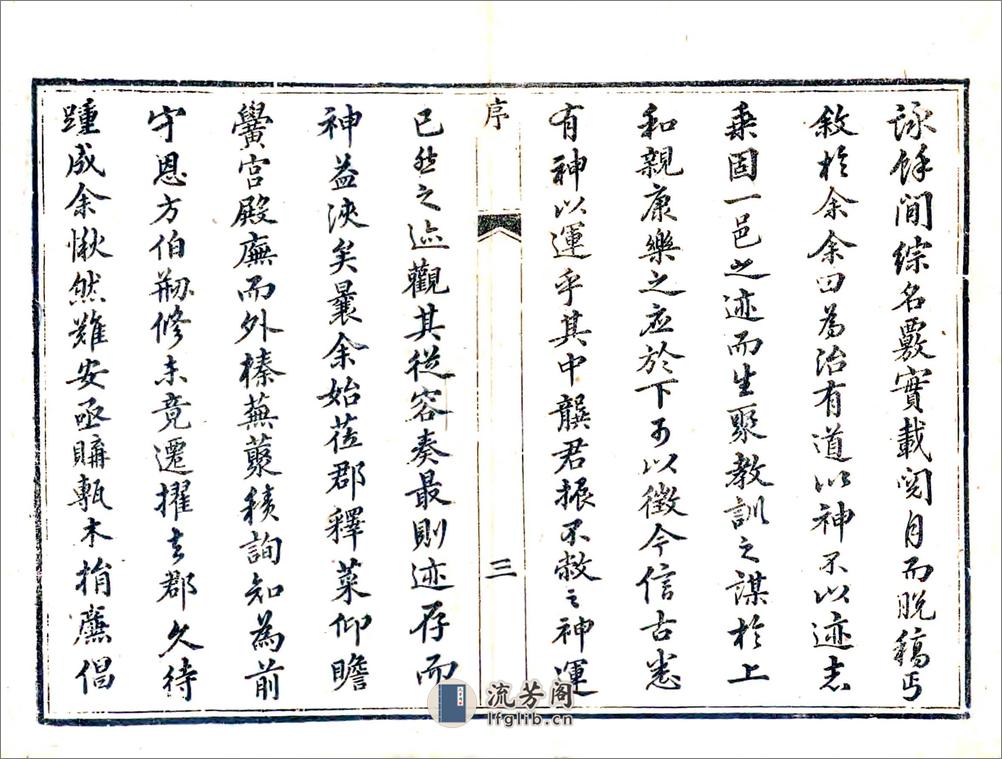 詠餘閒綜名覈實載閱月而脫稿丐
敘於余余曰為治有道以神不以迹志
乘固一邑之迹而生聚教訓之謀於上
和親康樂之應於下可以徵今信古悉
有神以運乎其中龔君振不敝之神運
序
三
已然之迹觀其從容奏最則迹存而
神益浹矣曩余始莅郡釋菜仰瞻
黌宮殿廡而外榛蕪藂穢詢知為前
守恩方伯刱修未竟遷擢去郡久待
踵成余愀然難安亟購甎木捐廉倡
流芳阁
lfglib.cn